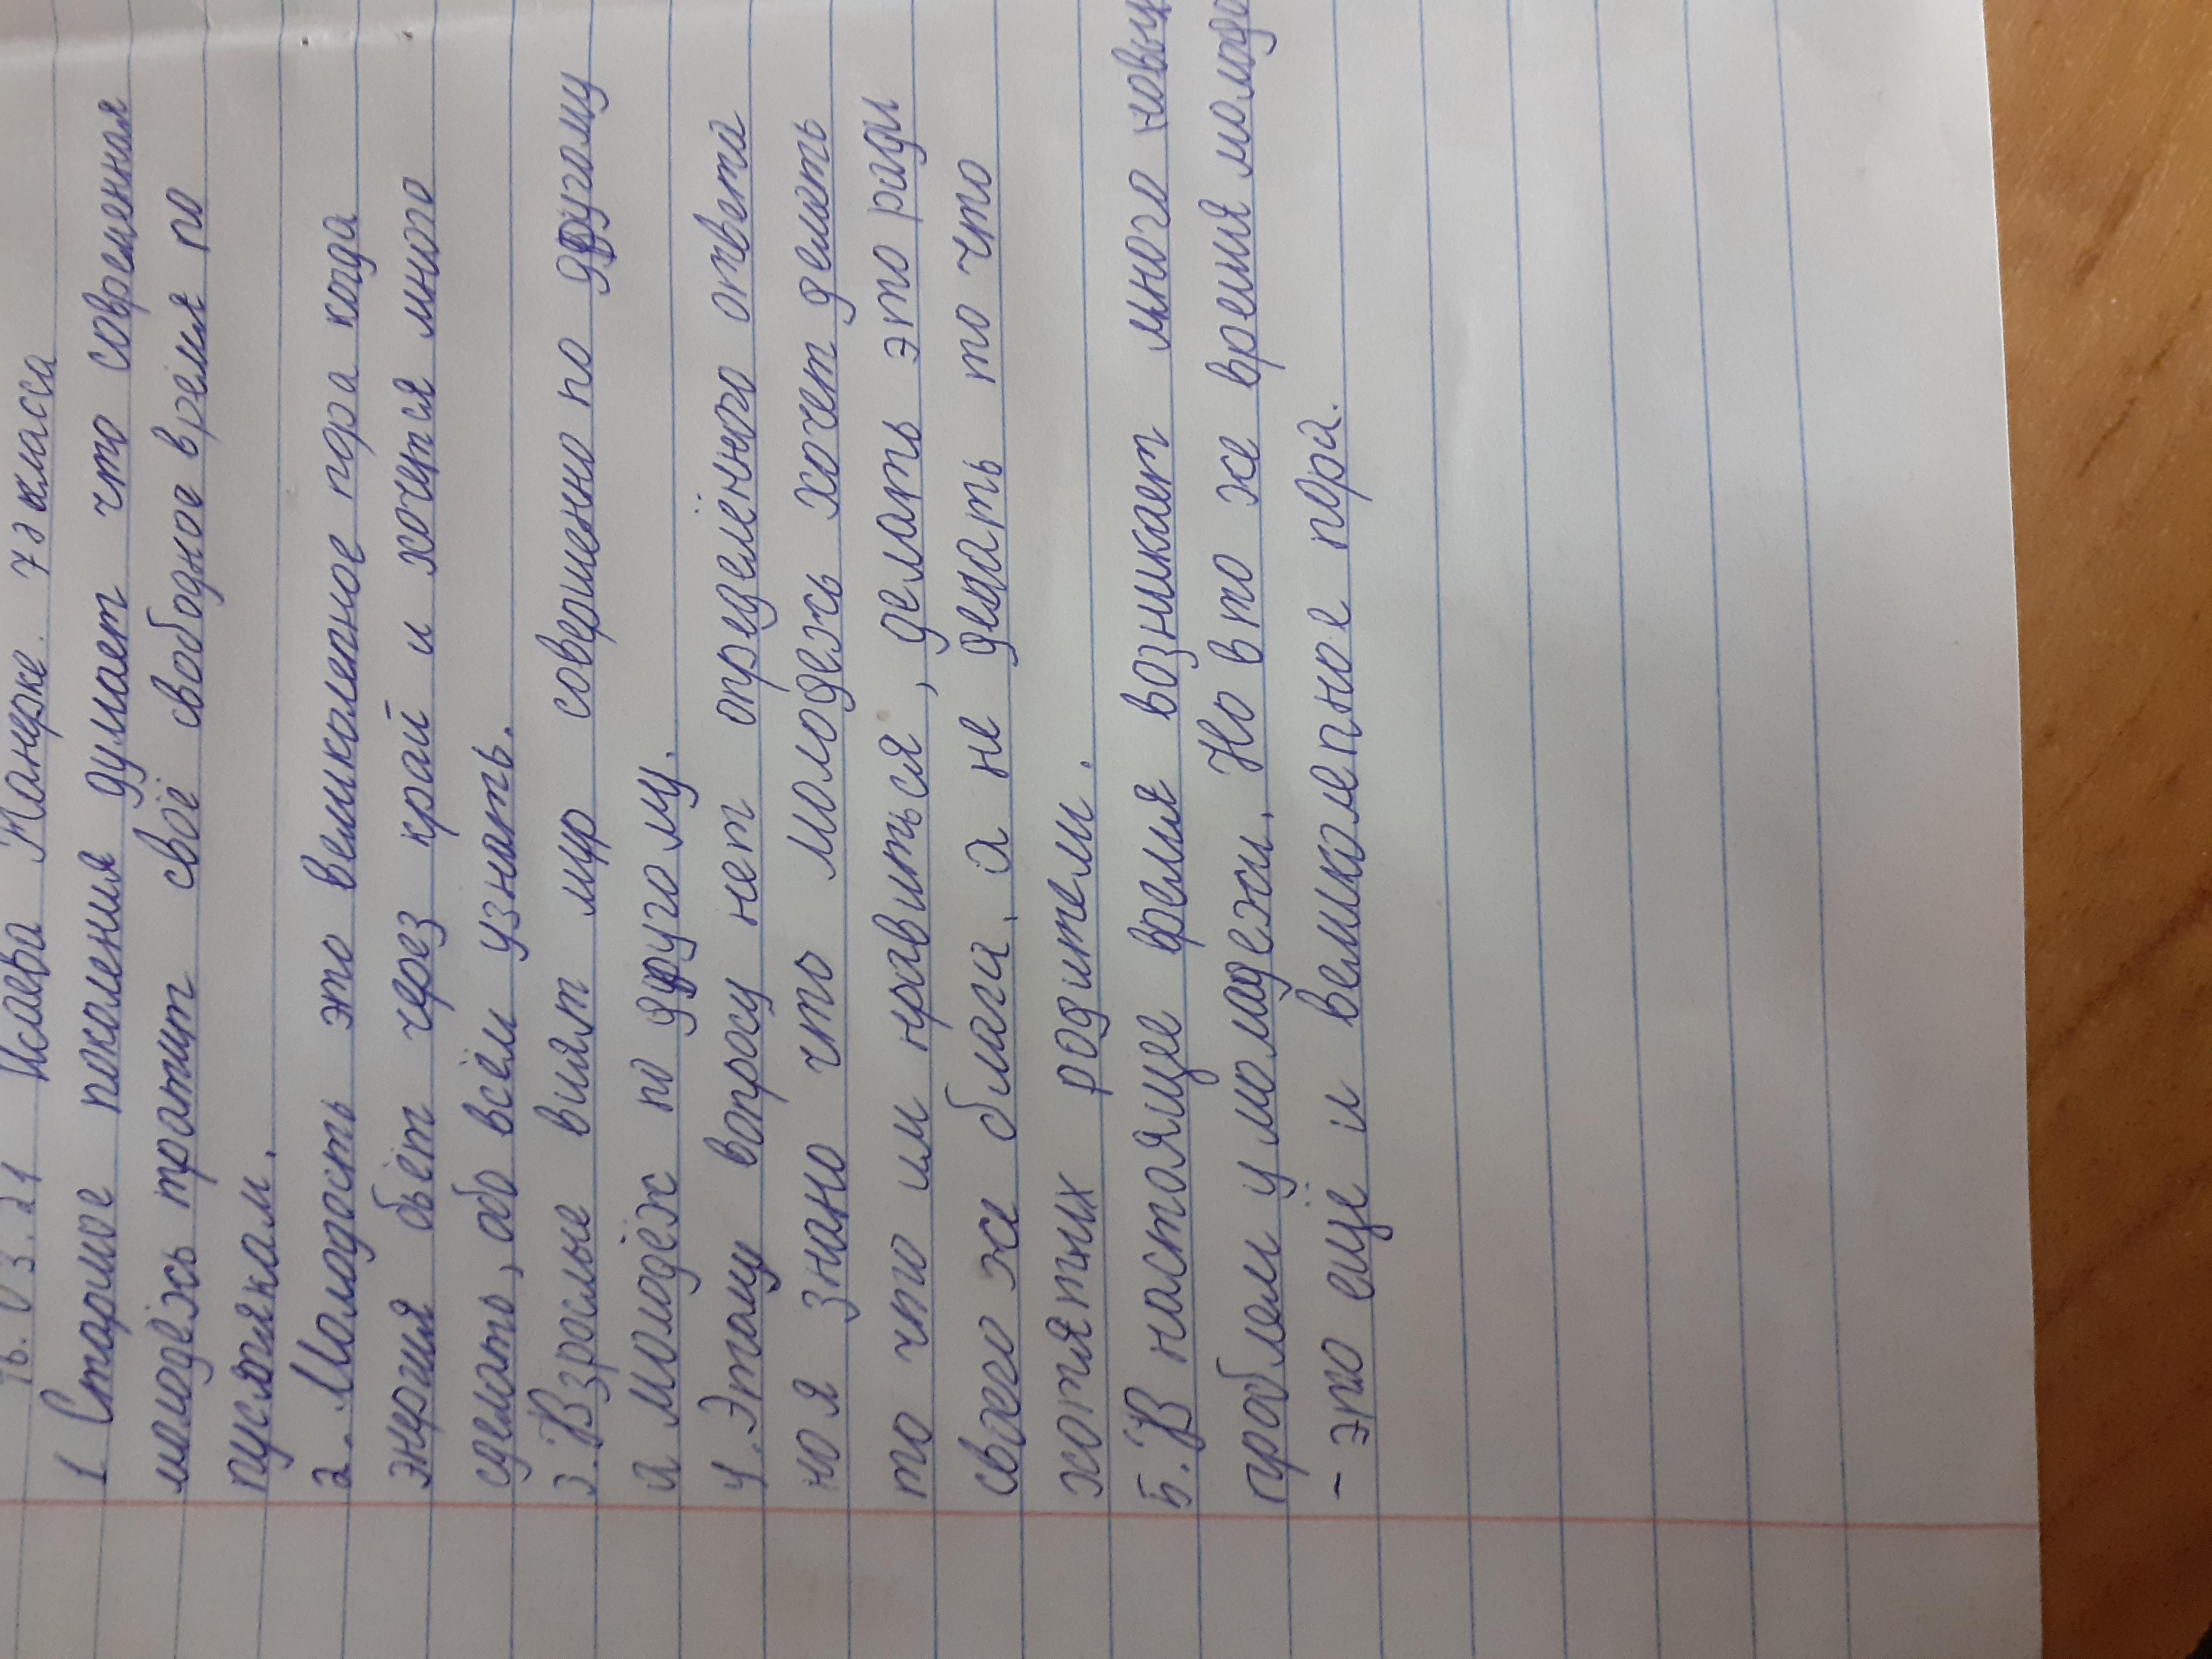 16.03.21 Исаева Танерке. 7д класса
1. Старшое поколения думает что современная
молодёжь тратит своё свободное время по
пустякам.
2. Молодость это великолепное пора когда
энергия бьёт через край и хочется много
сделать, обо всём узнать.
3. Взрослые виият мир совершенно по другому
а молодёж по другому.
4. Этому вопросу нет определённого ответа
но я знаю что молодежь хочет делать
то что им нравиться, делать это ради
своего же блага, а не делать то что
хотятих родители.
5. В настоящее время возникает много новых
проблем у моладежи. Но в то же время молодо
- это ещё и великолепное пора.